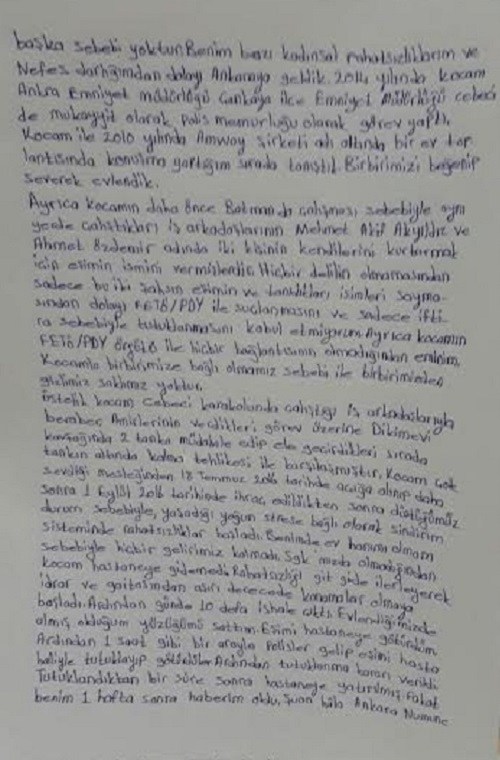 başka sebebi yoktur. Benim bazı kadınsal rahatsızlıklarım ve
Nefes darlığımdan dolayı Ankaraya geldik. 2014 yılında kocam
Ankra Emniyet müdürlüğü Çankaya ilce Emniyet Müdürlüğü cebeci
de mukayyit olarak, polis memurluğu olarak görev yaptı.
Kocam ile 2010 yılında Amway şirketi adı altında bir ev top
lantısında konuşma yaptığım sırada tanıştık. Birbirimizi beğenip
severek evlendik.
Ayrıca kocamın daha önce Batman da çalışması sebebiyle aynı
yerde çalıştıkları iş arkadaşlarının Mehmet Akif Akyıldız ve
Ahmet Özdemir adında iki kişinin kendilerini kurtarmak
için eşimin ismini vermişlerdir. Hiçbir delilin olmamasından
sadece bu iki şahsın eşimin ve tanıdıkları isimleri sayma-
sından dolayı FETÖ/PDY ile suçlanmasını ve sadece ifti-
ra sebebiyle tutuklanmasını kabul etmiyorum. Ayrıca kocamın
FETÖ/PDY örgütü ile hiçbir bağlantısının olmadığından eminim.
Kocamla birbirimize bağlı olmamız sebebi ile birbirimizden
gizlimiz saklımız yoktur.
üstelik kocam Cebeci karakolunda çalıştığı iş arkadaşlarıyla
beraber Amirlerinin verdikleri görev üzerine Dikimevi
kavşağında 2 tanka müdahale edip ele geçirdikleri sırada
tankın altında kalma tehlikesi ile karşılaşmıştır. Kocam çok
sevdiği mesleğinden 18 Temmuz 2016 tarihde açığa alınıp daha
sonra 1 Eylül 2016 tarihinde ihraç edildikten sonra düştüğümüz
durum sebebiyle, yaşadığı yoğun strese bağlı olarak sindirim
sisteminde rahatsızlıklar başladı. Benimde ev hanımı olmam
sebebiyle hiçbir gelirimiz kalmadı. Sgk mızda olmadığından
kocam hastaneye gidemedi. Rahatsızlığı git gide ilerleyerek
idrar ve gaitasından aşırı derecede kanamalar olmaya
başladı. Ardından günde 10 defa ishale çıktı. Evlendiğimizde
almış olduğum yüzüğümü sattım. Eşimi hastaneye götürdüm.
Ardından 1 saat gibi bir arayla polisler gelip eşimi hasta
haliyle tutuklayıp götürdüler. Ardından tutuklanma kararı verildi.
Tutuklandıktan bir süre sonra hastaneye yatırılmış. Fakat
benim 1 hafta sonra haberim oldu. Şuan hala Ankara Numune